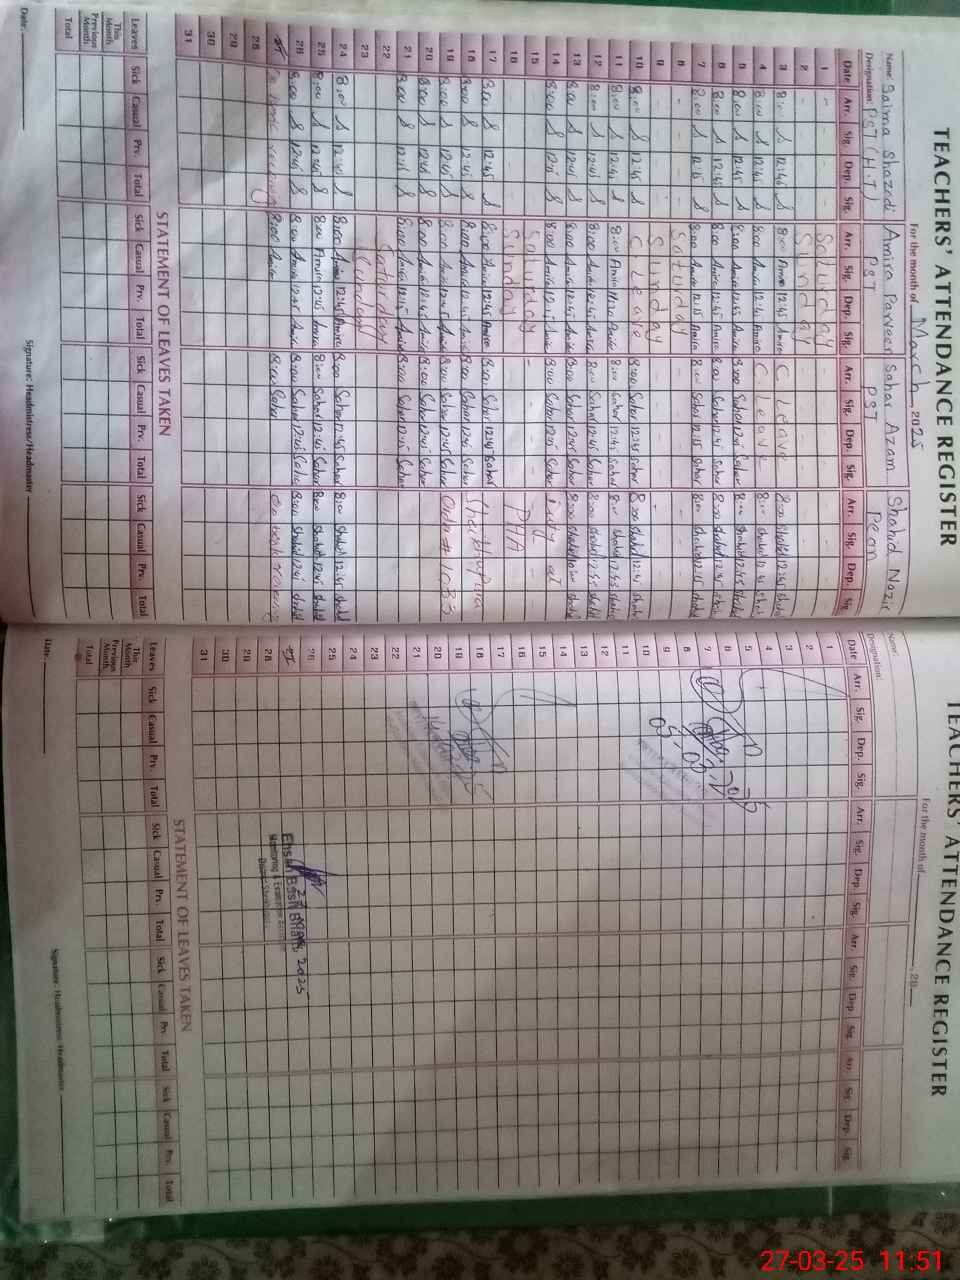 TEACHERS' ATTENDANCE REGISTER
For the month of March, 2025
Name: Saima Shazadi Amira Parveen Sahar Azam Shahid Nazir
Designation: PST (H.T) PST PST Peon
Date Arr. Sig. Dep. Sig. Arr. Sig. Dep. Sig. Arr. Sig. Dep. Sig. Arr. Sig. Dep. Sig.
1 - - - - Saturday - - - -
2 - - - - Sunday - - - -
3 8:00 S 12:45 S 8:00 Amira 12:45 Amira C. Leave 8:00 Shahid 12:45 Shahid
4 8:00 S 12:45 S 8:00 Amira 12:45 Amira C. Leave 8:00 Shahid 12:45 Shahid
5 8:00 S 12:45 S 8:00 Amira 12:45 Amira 8:00 Sahar 12:45 Sahar 8:00 Shahid 12:45 Shahid
6 8:00 S 12:45 S 8:00 Amira 12:45 Amira 8:00 Sahar 12:45 Sahar 8:00 Shahid 12:45 Shahid
7 8:00 S 12:15 S 8:00 Amira 12:15 Amira 8:00 Sahar 12:15 Sahar 8:00 Shahid 12:15 Shahid
8 - - - - Saturday - - - -
9 - - - - Sunday - - - -
10 8:00 S 12:45 S C. Leave 8:00 Sahar 12:45 Sahar 8:00 Shahid 12:45 Shahid
11 8:00 S 12:45 S 8:00 Amira Amira 8:00 Sahar 12:45 Sahar 8:00 Shahid Shahid
12 8:00 S 12:45 S 8:00 Amira 12:45 Amira 8:00 Sahar 12:45 Sahar 8:00 Shahid Shahid
13 8:00 S 12:45 S 8:00 Amira 12:45 Amira 8:00 Sahar 12:45 Sahar 8:00 Shahid Shahid
14 8:00 S 12:15 S 8:00 Amira 12:15 Amira 8:00 Sahar 12:15 Sahar Duty at
15 - - - - Saturday - PHA
16 - - - - Sunday
17 8:00 S 12:45 S 8:00 Amira 12:45 Amira 8:00 Sahar 12:45 Sahar
18 8:00 S 12:45 S 8:00 Amira 12:45 Amira 8:00 Sahar 12:45 Sahar Sheikhupura
19 8:00 S 12:45 S 8:00 Amira 12:45 Amira 8:00 Sahar 12:45 Sahar Order # 1033
20 8:00 S 12:45 S 8:00 Amira 12:45 Amira 8:00 Sahar 12:45 Sahar
21 8:00 S 12:15 S 8:00 Amira 12:15 Amira 8:00 Sahar 12:15 Sahar
22 Saturday
23 Sunday
24 8:00 S 12:45 S 8:00 Amira 12:45 Amira 8:00 Sahar 12:45 Sahar 8:00 Shahid 12:45 Shahid
25 8:00 S 12:45 S 8:00 Amira 12:45 Amira 8:00 Sahar 12:45 Sahar 8:00 Shahid 12:45 Shahid
26 8:00 S 12:45 S 8:00 Amira 12:45 Amira 8:00 Sahar 12:45 Sahar 8:00 Shahid 12:45 Shahid
27 8:00 Amira 8:00 Sahar
28
29
30
31
STATEMENT OF LEAVES TAKEN
Leaves Sick Casual Prv. Total Sick Casual Prv. Total Sick Casual Prv. Total Sick Casual Prv. Total
This Month
Previous Month
Total
Date: Signature: Headmistress/Headmaster
TEACHERS' ATTENDANCE REGISTER
For the month of , 20
Name:
Designation:
Date Arr. Sig. Dep. Sig. Arr. Sig. Dep. Sig. Arr. Sig. Dep. Sig. Arr. Sig. Dep. Sig.
1
2
3
4
5
6
7
8
9
10
11
12
13
14
15
16
17
18
19
20
21
22
23
24
25
26
27
28
29
30
31
27 MAR 2025
Monitoring & Evaluation
STATEMENT OF LEAVES TAKEN
Leaves Sick Casual Prv. Total Sick Casual Prv. Total Sick Casual Prv. Total Sick Casual Prv. Total
This Month
Previous Month
Total
Date: Signature: Headmistress/Headmaster
27-03-25 11:51